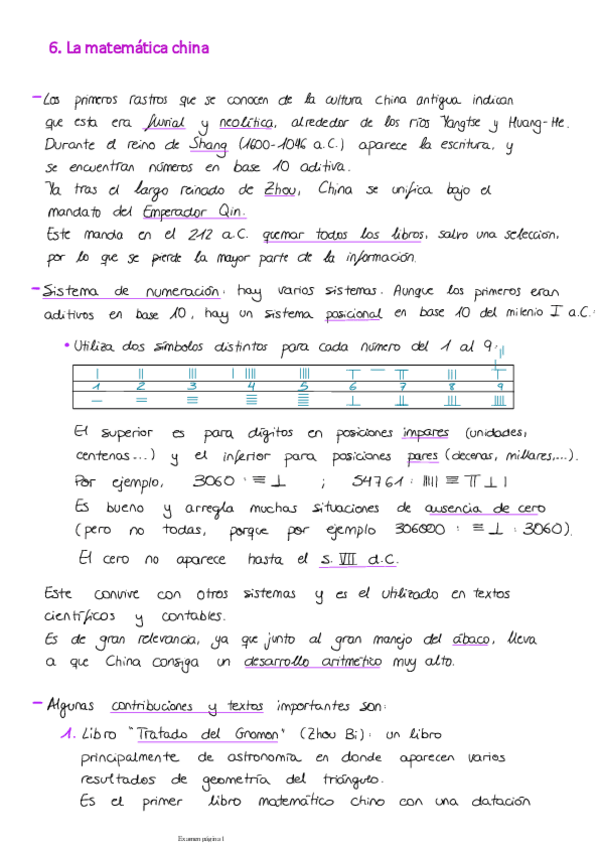 6. La matemática china
- Los primeros rastros que se conocen de la cultura china antigua indican
que esta era fluvial y neolítica, alrededor de los ríos Yangtse y Huang-He.
Durante el reino de Shang (1600-1046 a.C.) aparece la escritura, y
se encuentran números en base 10 aditiva.
Ya tras el largo reinado de Zhou, China se unifica bajo el
mandato del Emperador Qin.
Este manda en el 212 a.C. quemar todos los libros, salvo una selección,
por lo que se pierde la mayor parte de la información.
- Sistema de numeración: hay varios sistemas. Aunque los primeros eran
aditivos en base 10, hay un sistema posicional en base 10 del milenio I a.C.:
• Utiliza dos símbolos distintos para cada número del 1 al 9:
1 2 3 4 5 6 7 8 9
El superior es para dígitos en posiciones impares (unidades,
centenas...) y el inferior para posiciones pares (decenas, millares,...).
Por ejemplo, 3060 : ≡ ⊥ ; 54761 : |||| ≡ ╥ ⊥ |
Es bueno y arregla muchas situaciones de ausencia de cero
(pero no todas, porque por ejemplo 306000 : ≡ ⊥ : 3060).
El cero no aparece hasta el s. VII d.C.
Este convive con otros sistemas y es el utilizado en textos
científicos y contables.
Es de gran relevancia, ya que junto al gran manejo del ábaco, lleva
a que China consiga un desarrollo aritmético muy alto.
- Algunas contribuciones y textos importantes son:
1. Libro "Tratado del Gnomon" (Zhou Bi): un libro
principalmente de astronomía en donde aparecen varios
resultados de geometría del triángulo.
Es el primer libro matemático chino con una datación
Examen página 1